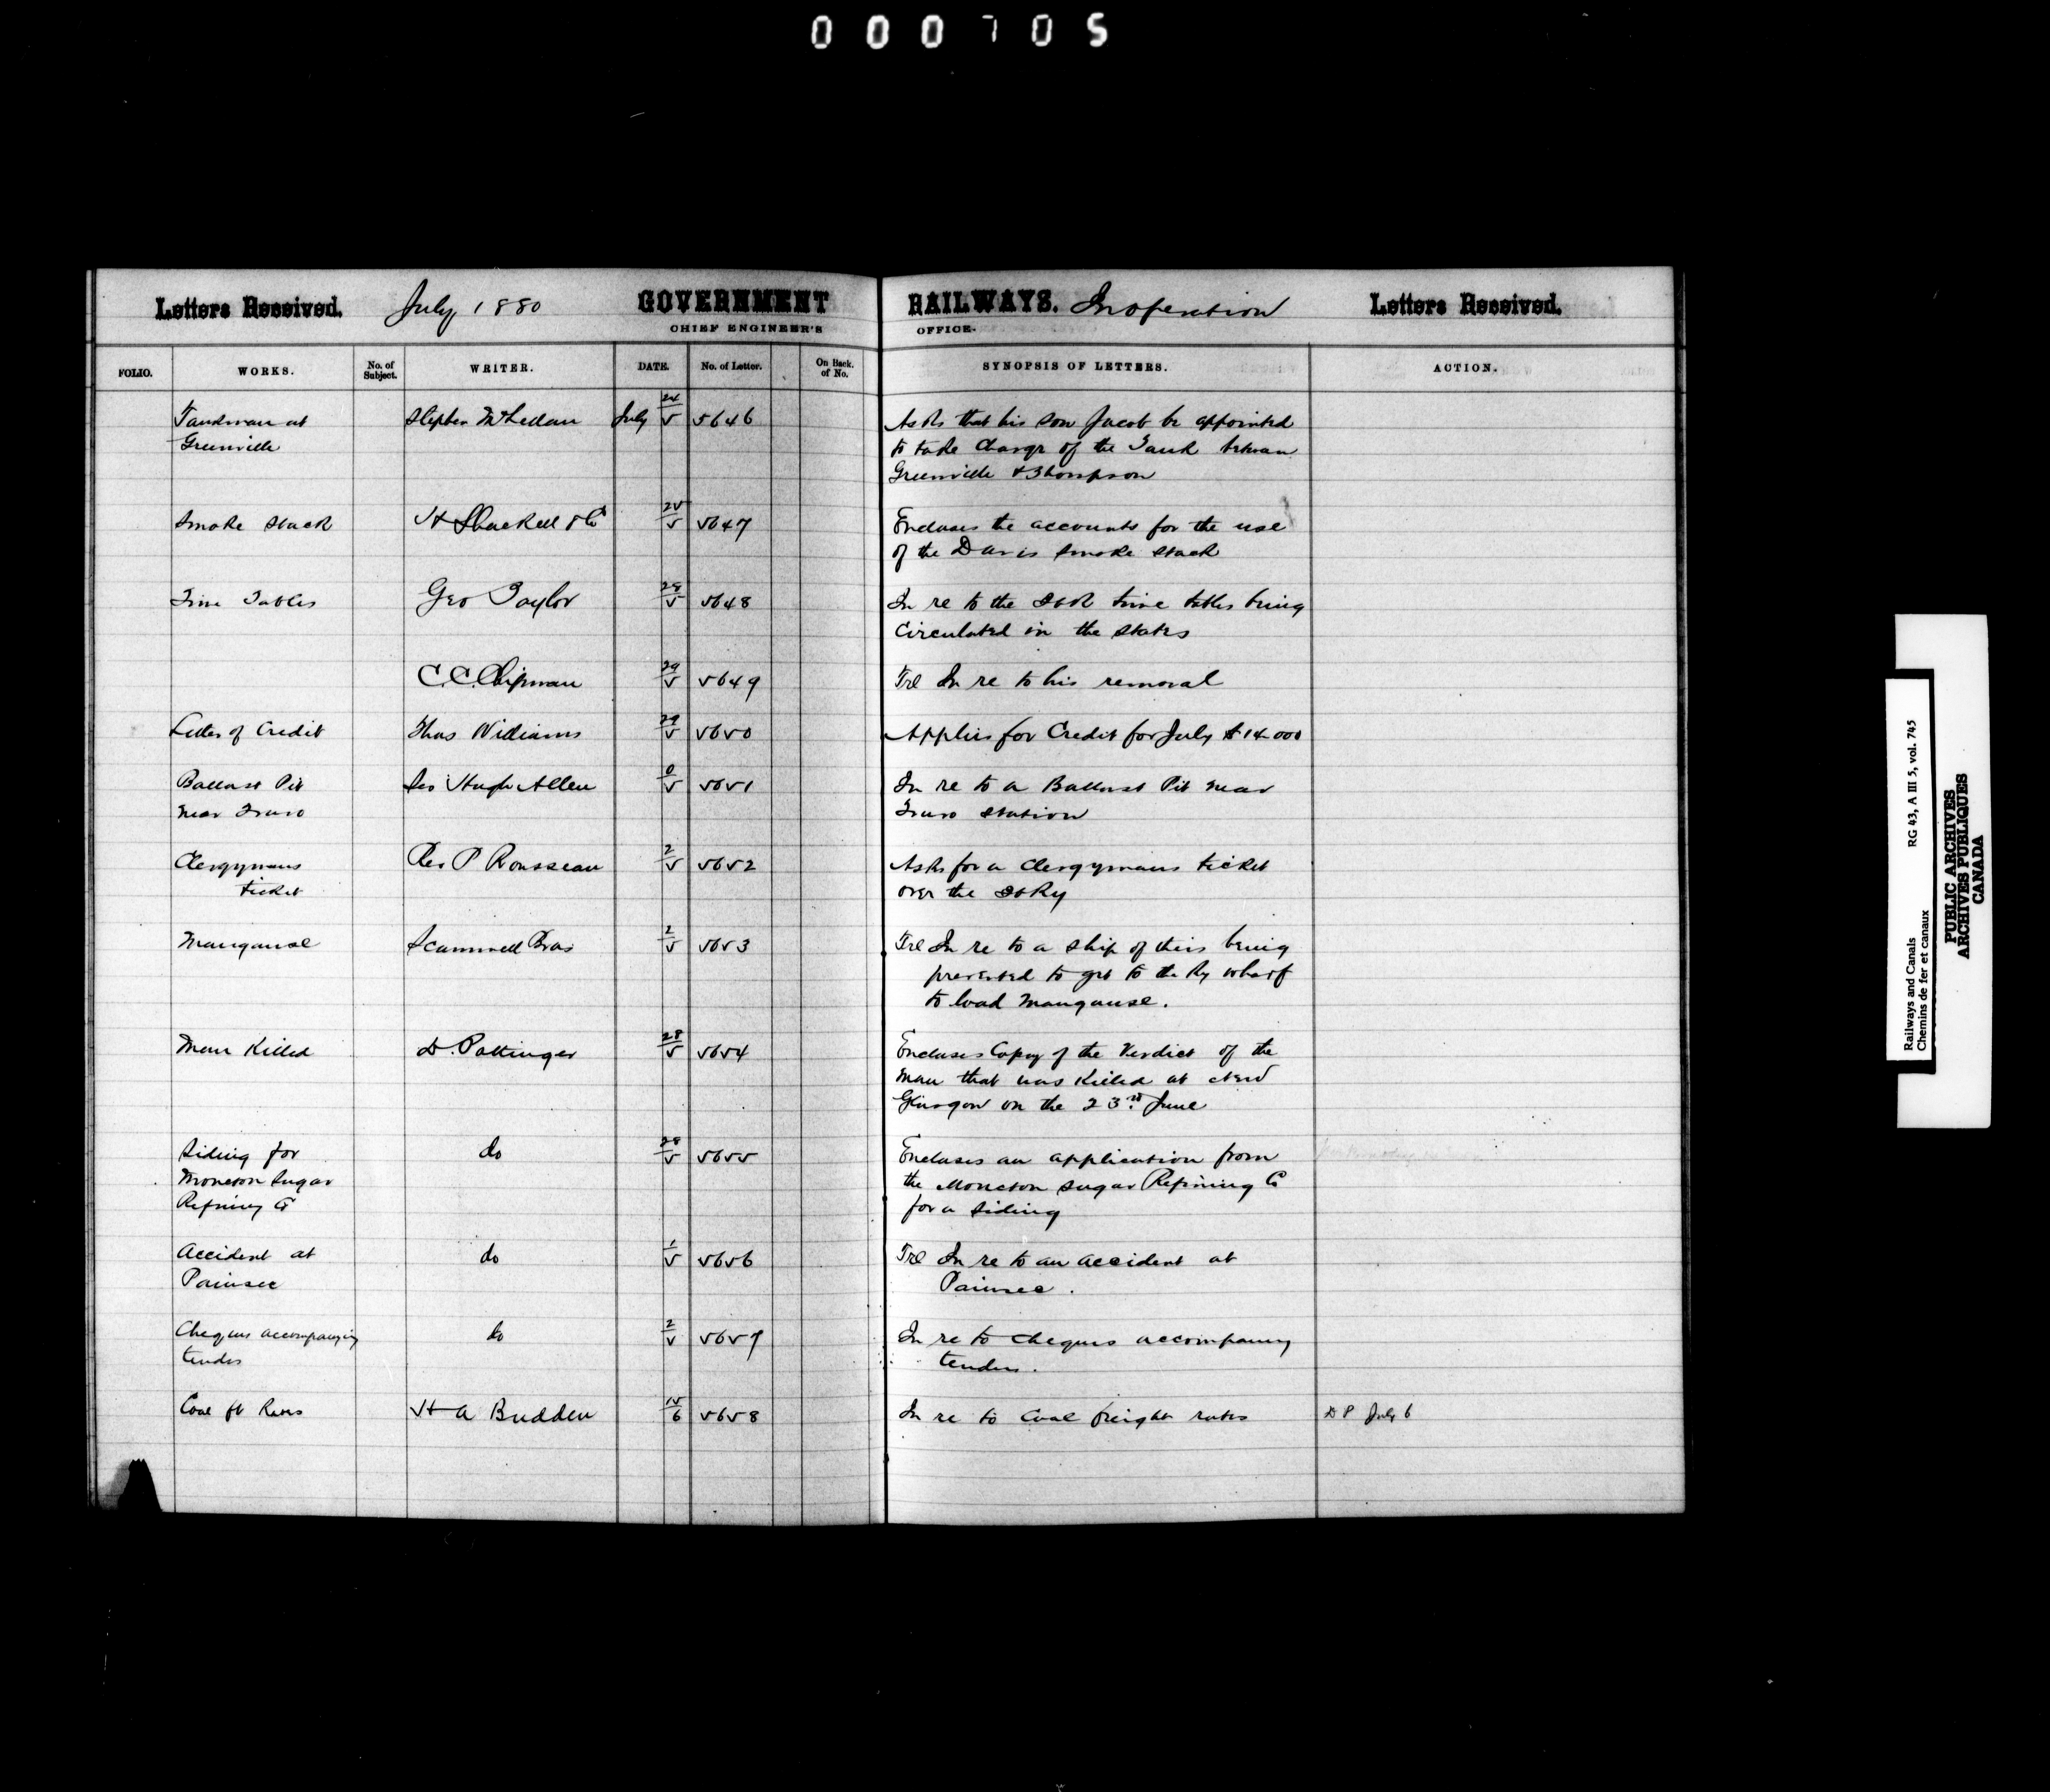 000705
Letters Received. July 1880 GOVERNMENT RAILWAYS. In operation Letters Received.
CHIEF ENGINEER'S OFFICE.
FOLIO. WORKS. No. of Subject. WRITER. DATE. No. of Letter. On Back. of No. SYNOPSIS OF LETTERS. ACTION.
Tankman at Stephen McLellan July 24/5 5646 Asks that his son Jacob be appointed
Greenville to take Charge of the Tank between
Greenville & Thompson
Smoke Stack H Shackell & Co 25/5 5647 Encloses the accounts for the use
of the Davis Smoke Stack
Time Tables Geo Taylor 28/5 5648 In re to the ICR time tables being
Circulated in the States
C.C. Chipman 29/5 5649 Tel In re to his removal
Letter of Credit Thos Williams 29/5 5650 Applies for Credit for July $14000
Ballast Pit Sir Hugh Allen 0/5 5651 In re to a Ballast Pit near
near Truro Truro Station
Clergymans Rev P Rousseau 2/5 5652 Asks for a Clergymans ticket
ticket over the ICRy
Manganese Scammell Bros 2/5 5653 Tel In re to a ship of theirs being
prevented to get to the Ry wharf
to load Manganese.
Man Killed D. Pottinger 28/5 5654 Encloses Copy of the Verdict of the
man that was Killed at New
Glasgow on the 23rd June
Siding for do 28/5 5655 Encloses an application from
Moncton Sugar the Moncton Sugar Refining Co
Refining Co for a Siding
Accident at do 1/5 5656 Tel In re to an accident at
Painsec Painsec.
Cheques accompanying do 2/5 5657 In re to cheques accompany
tenders tenders.
Coal ft Rates H A Budden 15/6 5658 In re to Coal freight rates D P July 6
Railways and Canals RG 43, A III 5, vol. 745
Chemins de fer et canaux
PUBLIC ARCHIVES
ARCHIVES PUBLIQUES
CANADA